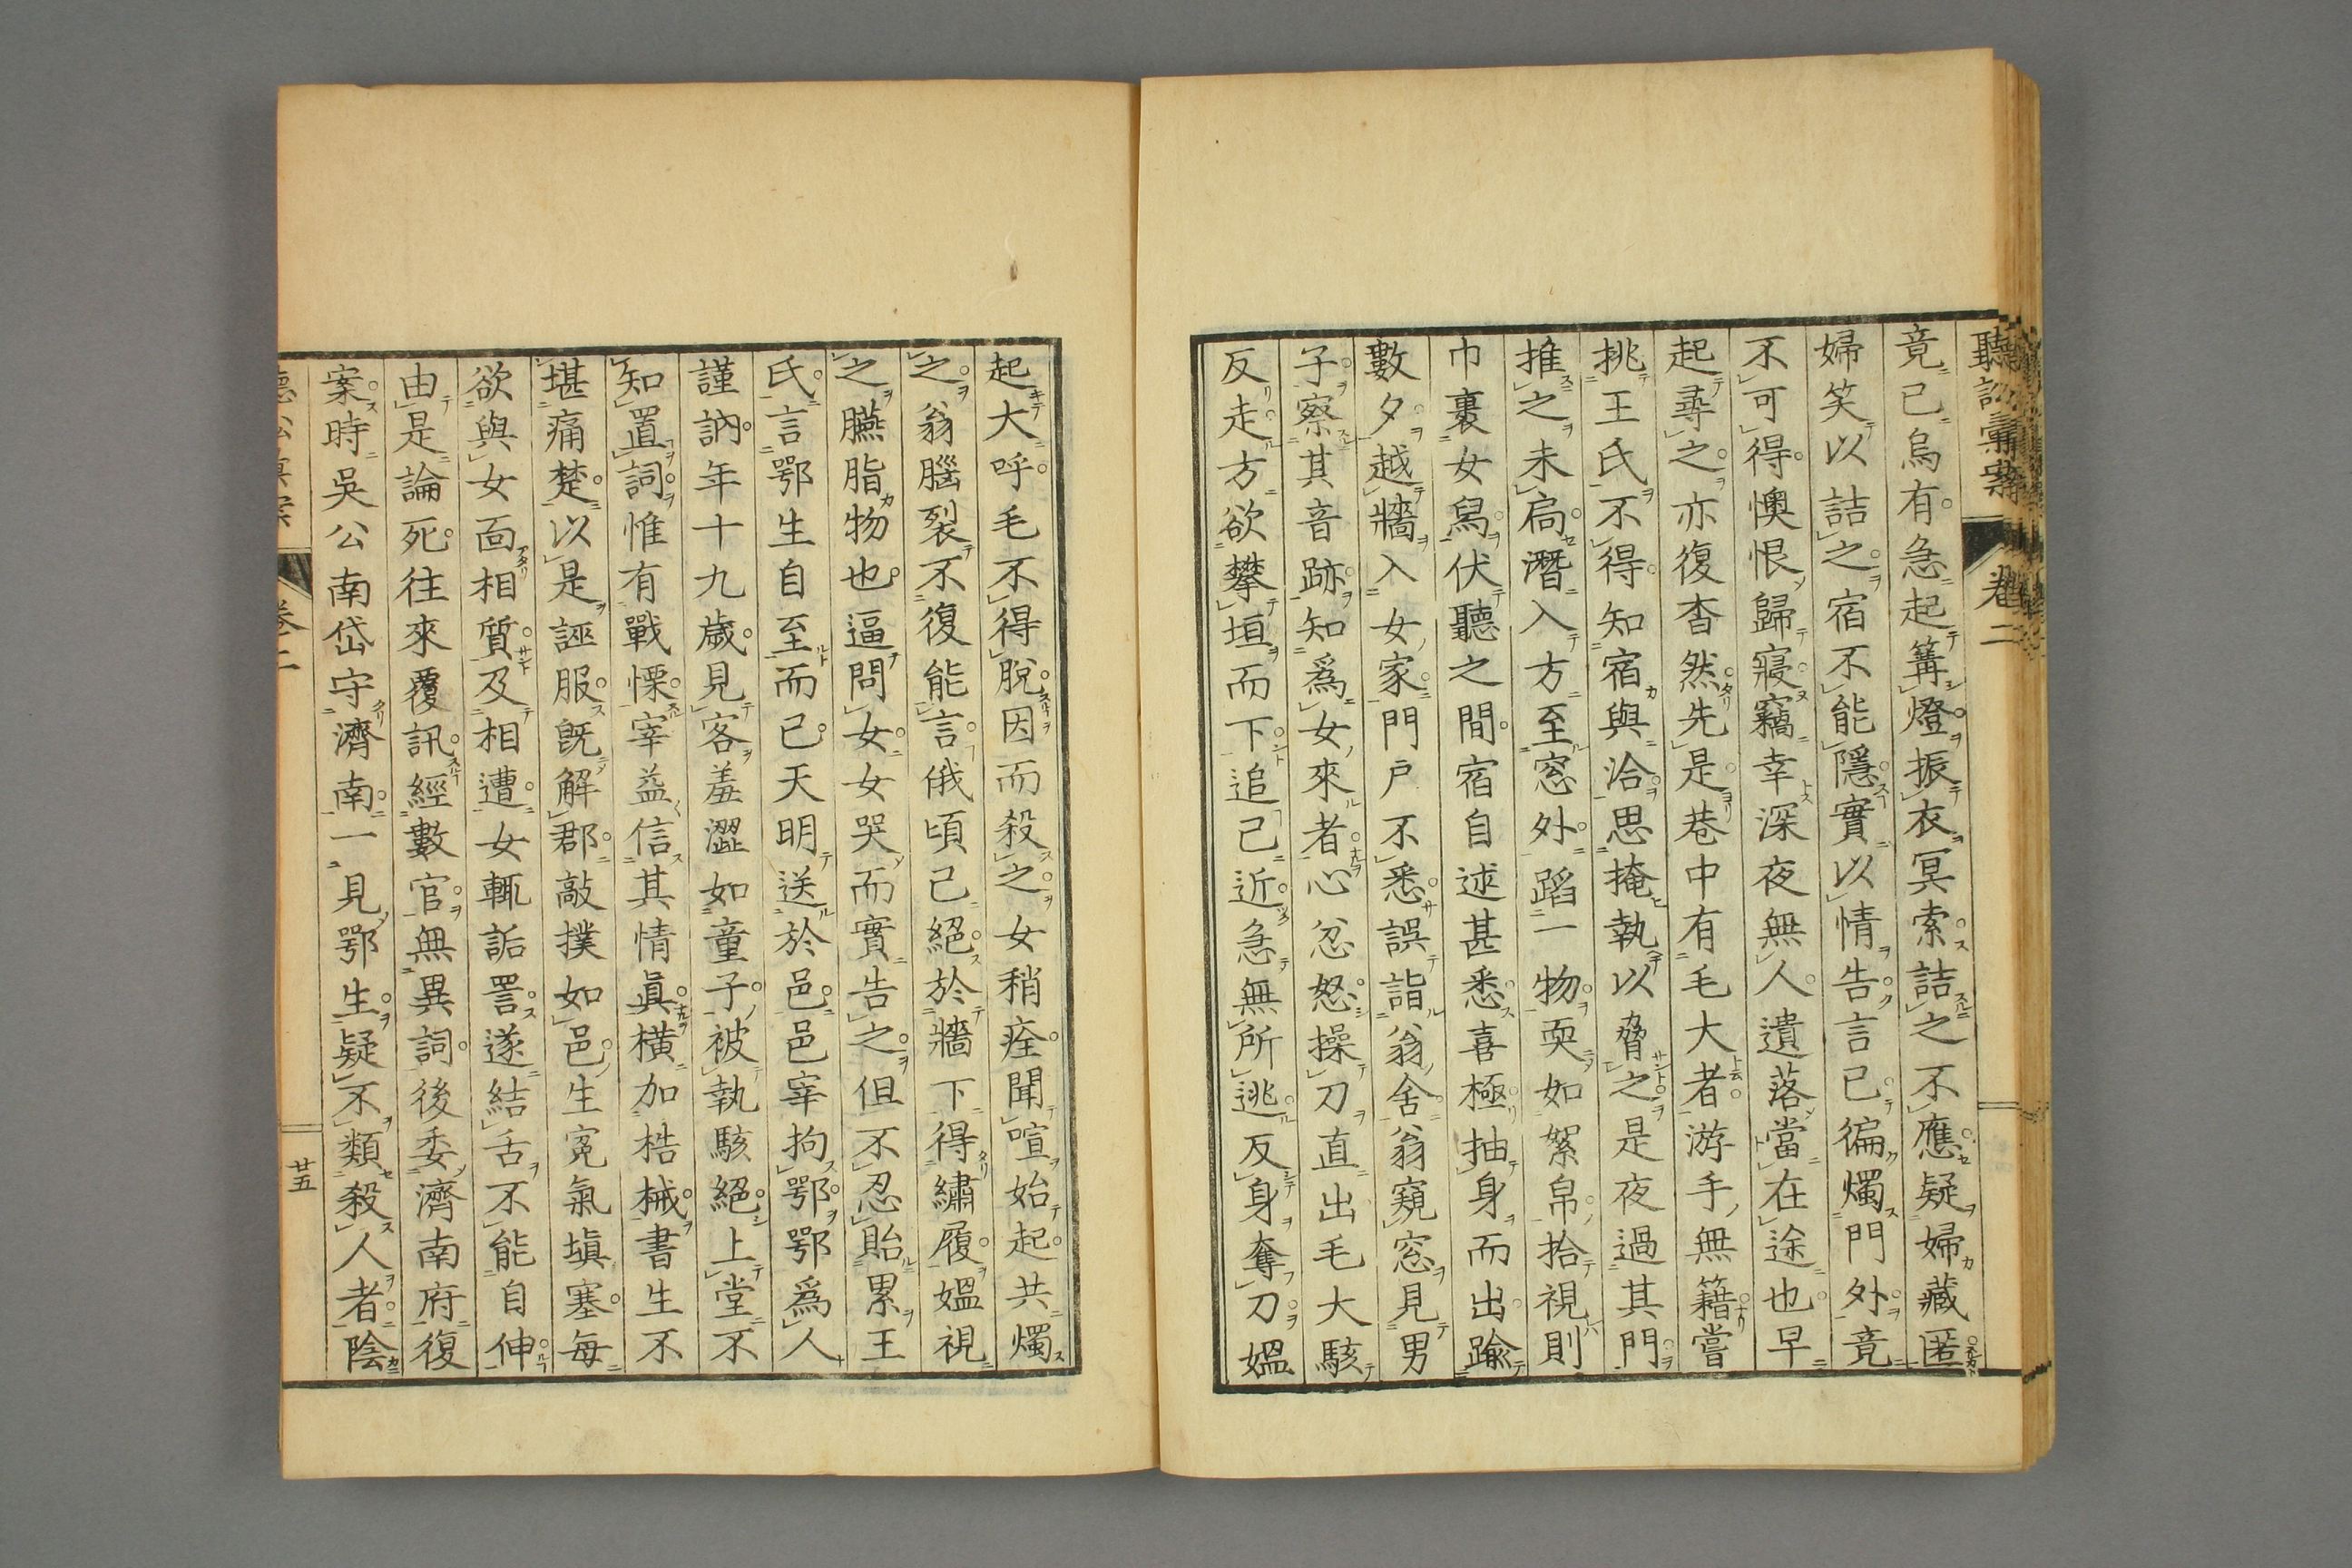 聽訟彙案　卷二
竟已烏有。急起篝燈。振衣冥索。詰之不應。疑婦藏匿。
婦笑以詰之。宿不能隱。實以情告。言已。徧燭門外。竟
不可得。懊恨歸寢。竊幸深夜無人。遺落當在途也。早
起尋之。亦復杳然。先是。巷中有毛大者。游手無籍。嘗
挑王氏不得。知宿與洽。思掩執以脅之。是夜過其門。
推之未扃。潛入方至窓外。蹈一物。耎如絮帛。拾視則
巾裹女舄。伏聽之間。宿自述甚悉。喜極。抽身而出。踰
數夕。越牆入女家。門戶不悉。誤詣翁舍。翁窺窓見男
子。察其音跡。知爲女來者。心忿怒。操刀直出。毛大駭
反走。方欲攀垣而下。追己近。急無所逃。反身奪刀。媼
起大呼。毛不得脫。因而殺之。女稍痊。聞喧始起。共燭
之。翁腦裂不復能言。俄頃已絕。於牆下得繡履。媼視
之。臙脂物也。逼問女。女哭而實告之。但不忍貽累王
氏。言鄂生自至而已。天明送於邑。邑宰拘鄂。鄂爲人
謹訥。年十九歲。見客羞澀如童子。被執駭絕。上堂不
知置詞。惟有戰慄。宰益信其情眞。橫加梏械。書生不
堪痛楚。以是誣服。旣解郡。敲撲如邑。生寃氣塡塞。每
欲與女面相質。及相遭。女輒詬詈。遂結舌不能自伸。
由是論死。往來覆訊。經數官。無異詞。後委濟南府復
案。時吳公南岱守濟南。一見鄂生。疑不類殺人者。陰
卷二　廿五